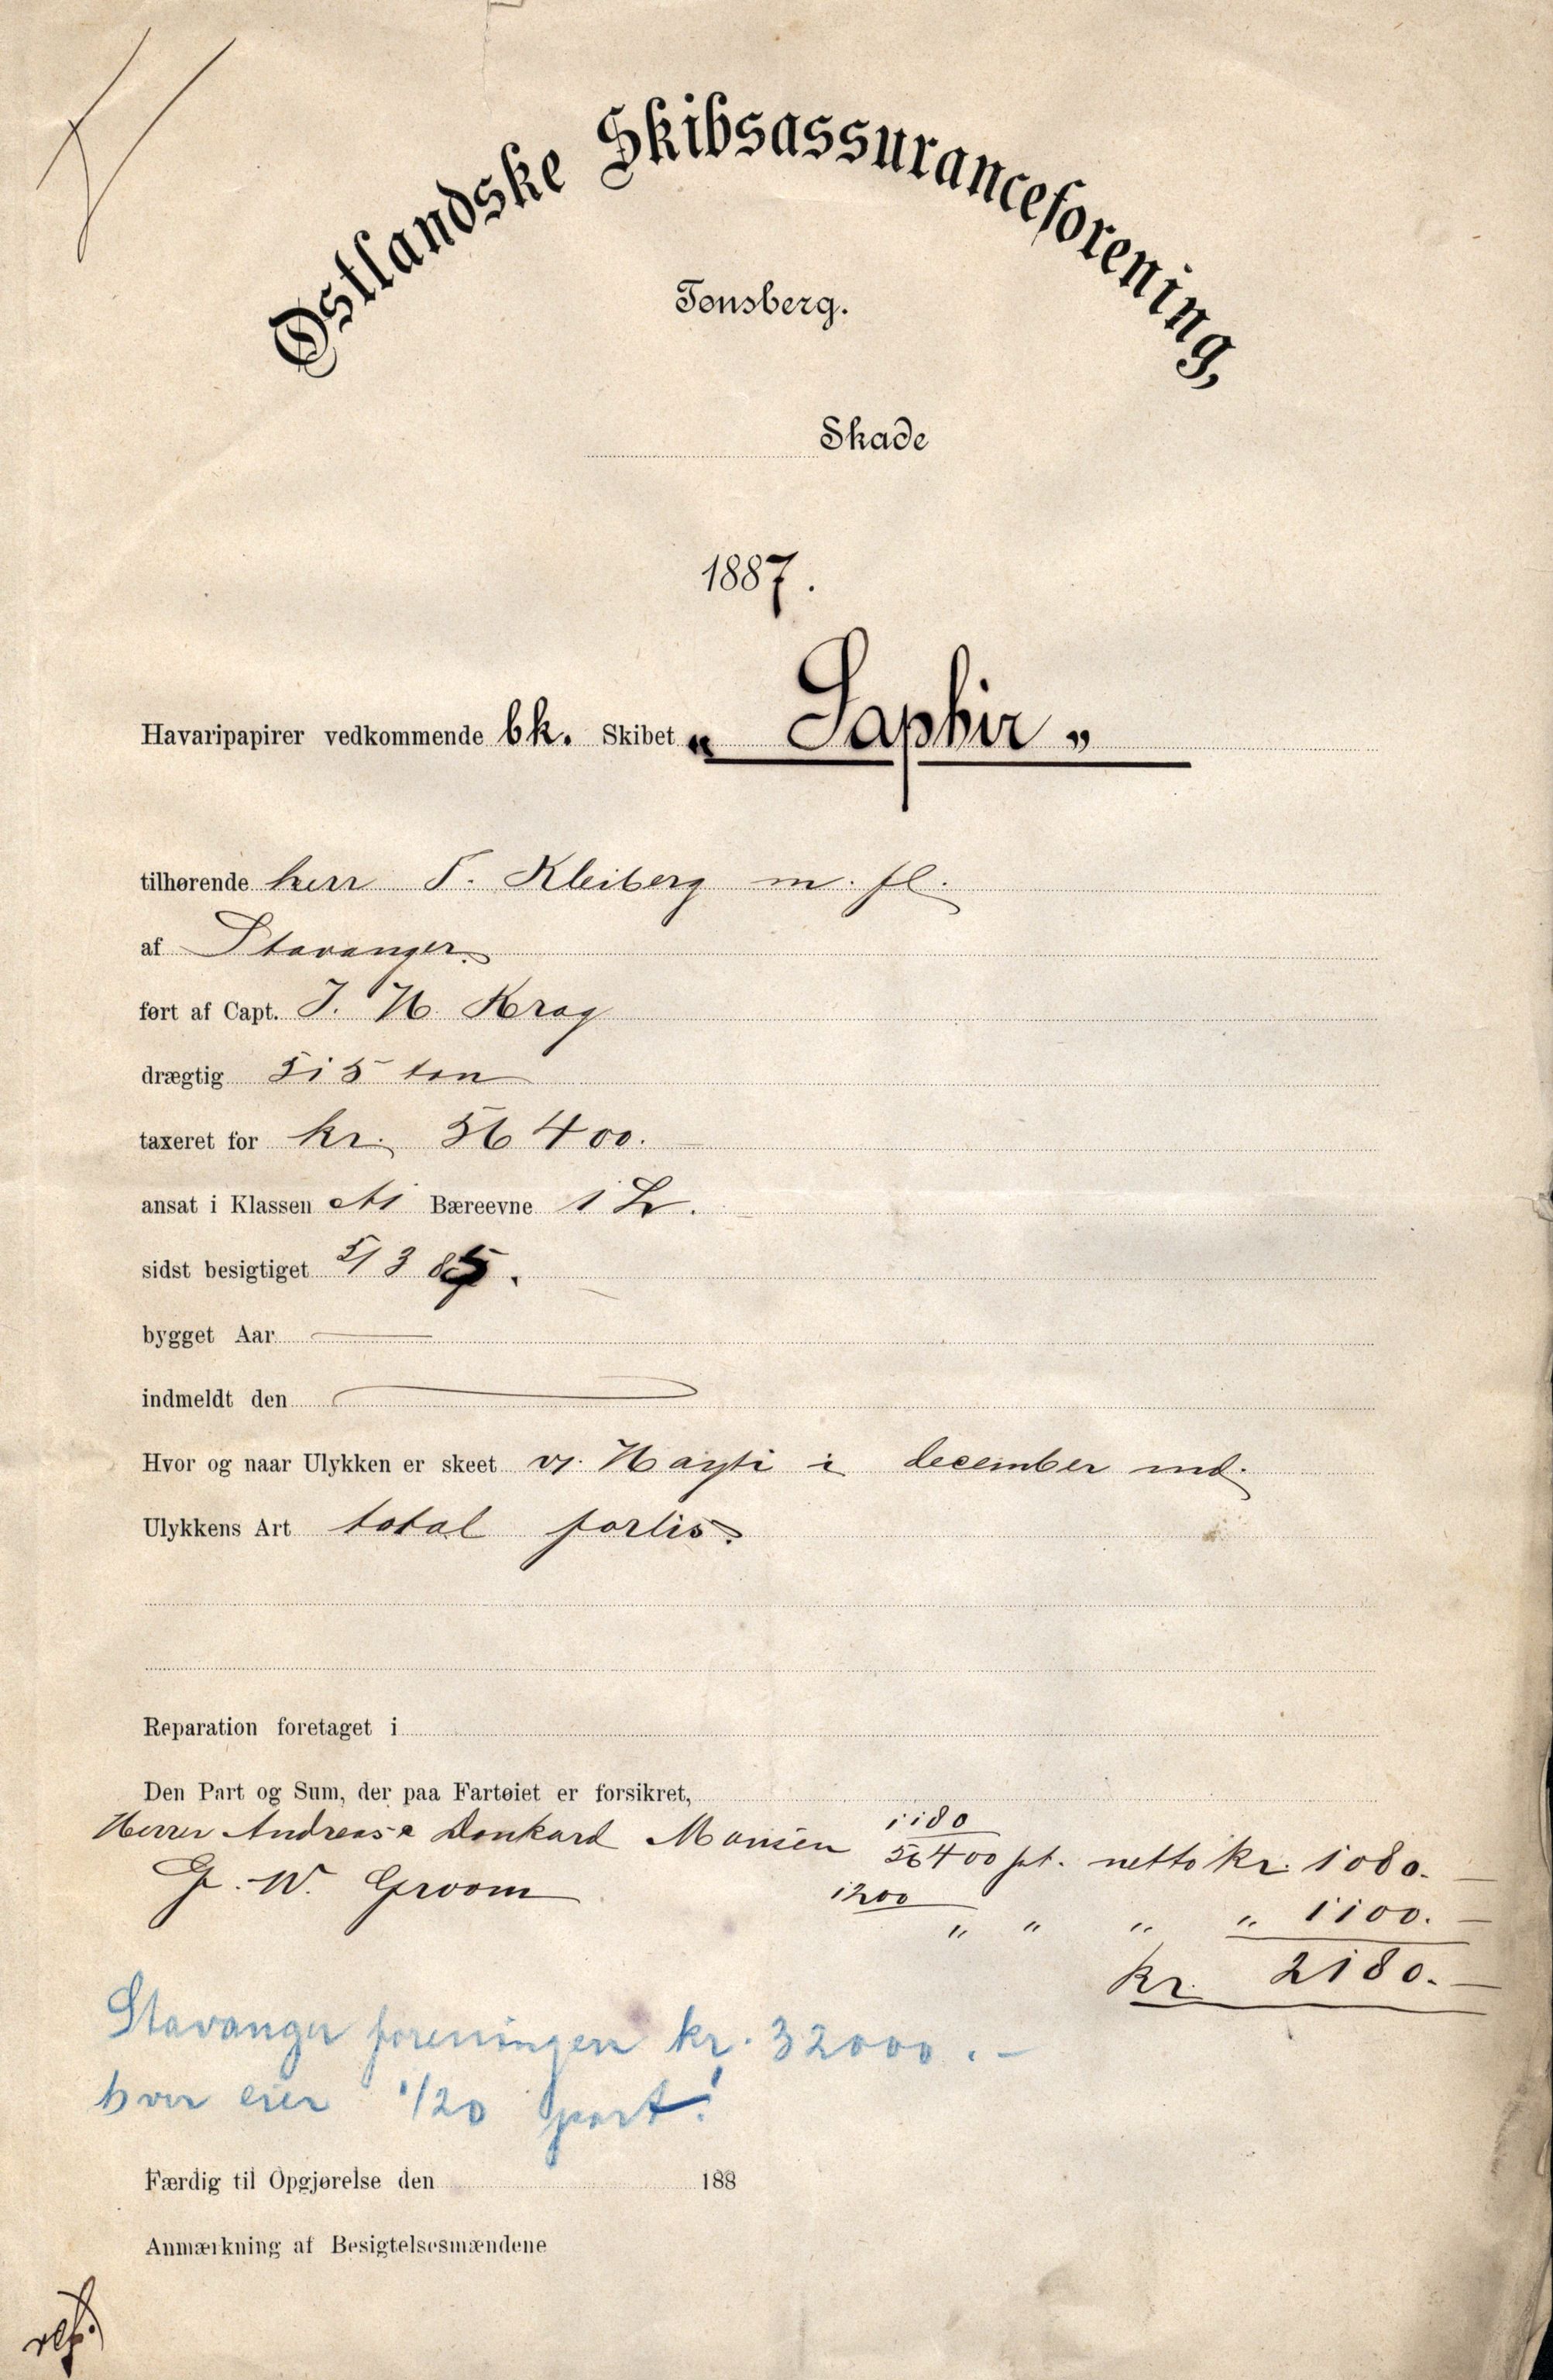 Østlandske Skibsassuranceforening,
Tønsberg.
Skade
1887.
Havaripapirer vedkommende bk. Skibet „ Saphir "
tilhørende herr F. Kleiberg m. fl.
af Stavanger.
ført af Capt. J. H. Krag
drægtig 515 ton
taxeret for kr. 56400.—
ansat i Klassen A1 Bæreevne 1 Z.
sidst besigtiget 5/3 85.
bygget Aar —
indmeldt den —
Hvor og naar Ulykken er skeet v. Hayti i december md.
Ulykkens Art total forlis.
Reparation foretaget i
Den Part og Sum, der paa Fartøiet er forsikret,
Herrer Andreas & Monsen 1180/56400 pt. netto kr. 1080.—
G. W. Groom 1200/" " " " 1100.—
kr. 2180.—
Stavanger foreningen kr. 32000.—
hver eier 1/20 part!
Færdig til Opgjørelse den 188
Anmærkning af Besigtelsesmændene